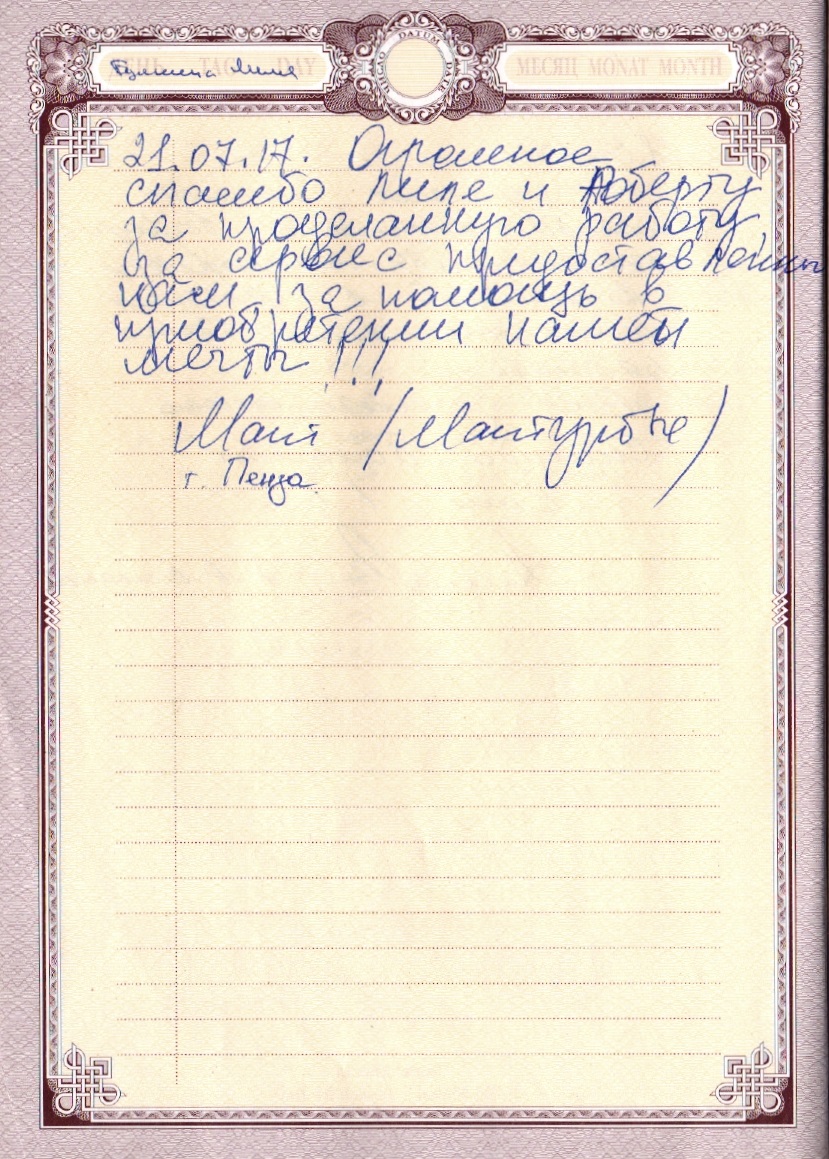 ДЕНЬ TAG DAY
DATUM DATE
МЕСЯЦ MONAT MONTH
21.07.17. Огромное
спасибо Лиле и Роберту
за проделанную работу,
за сервис предоставленный
нам, за помощь в
приобретении нашей
мечты !!!
г. Пенза